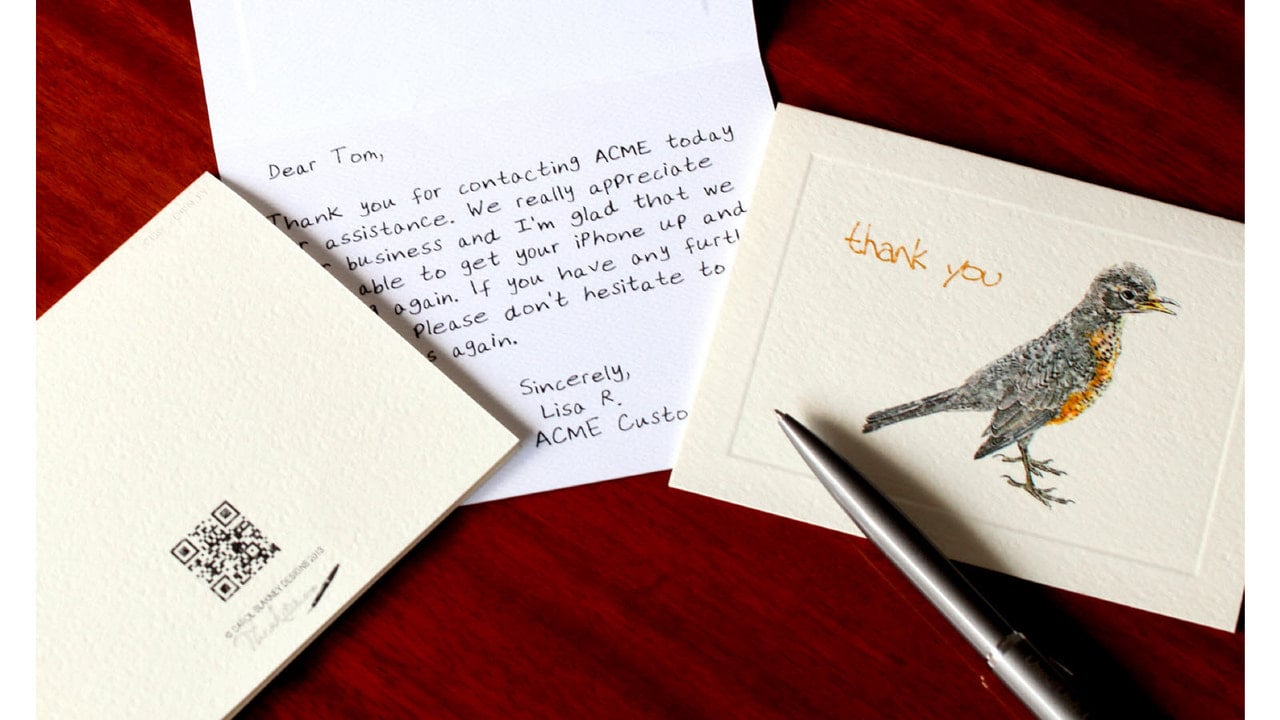 Dear Tom,
Thank you for contacting ACME today
assistance. We really appreciate
business and I'm glad that we
able to get your iPhone up and
again. If you have any
Please don't hesitate to
again.
Sincerely,
Lisa R.
ACME
thank you
DESIGNS 2013